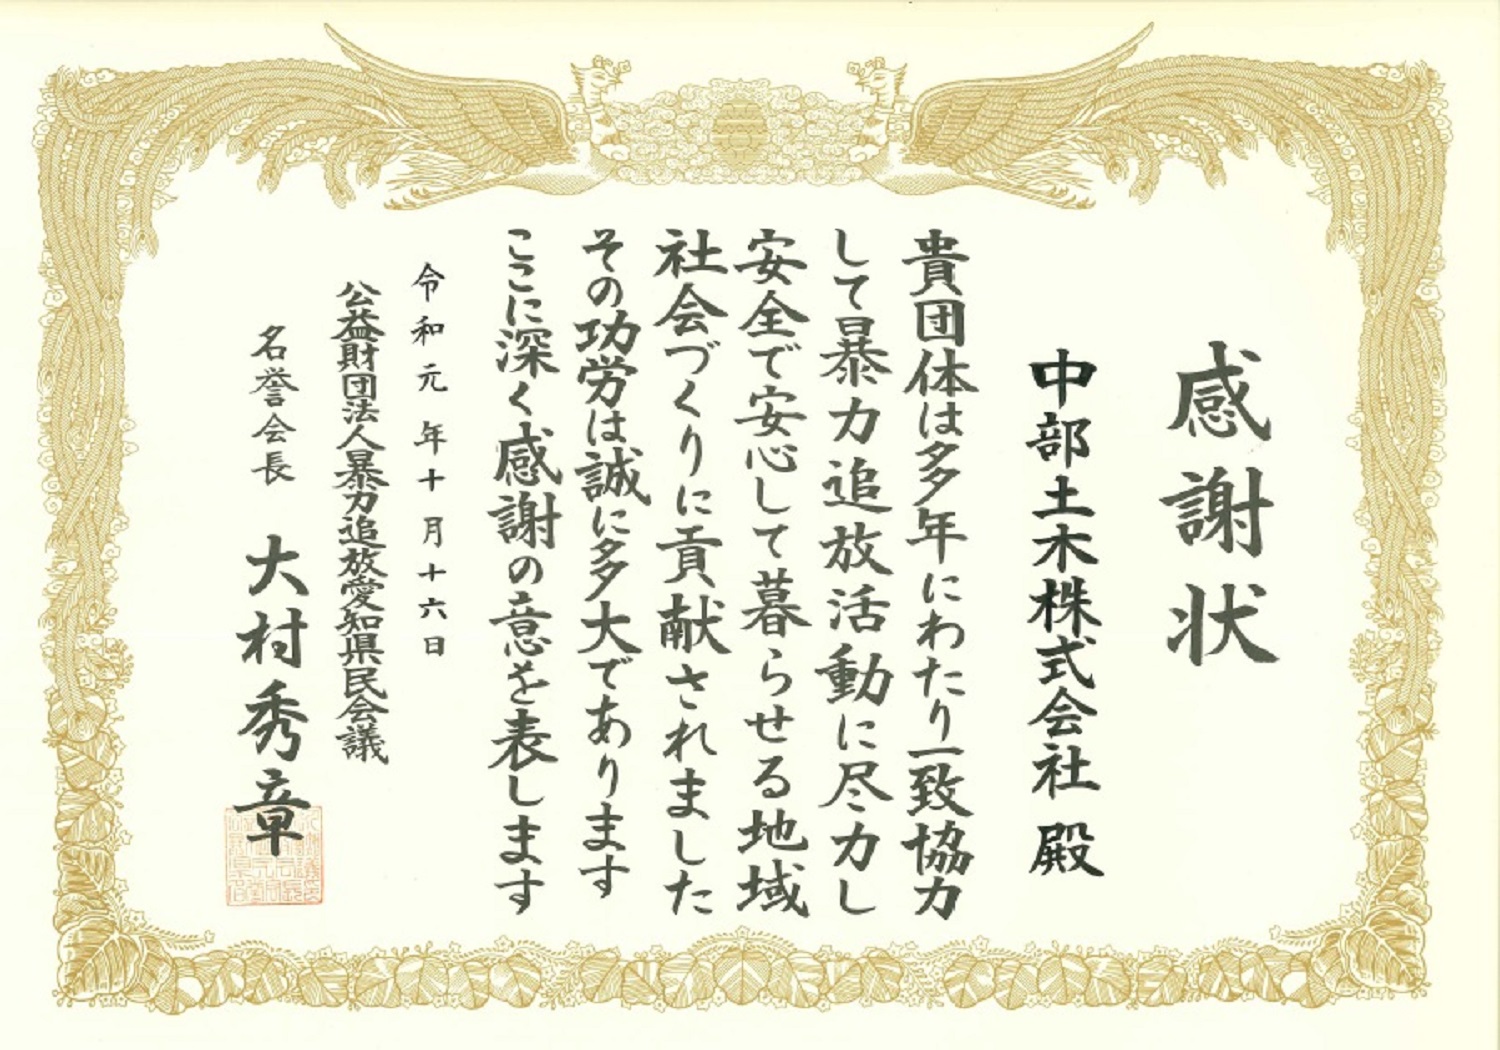 感謝状
中部土木株式会社 殿
貴団体は多年にわたり一致協力
して暴力追放活動に尽力し
安全で安心して暮らせる地域
社会づくりに貢献されました
その功労は誠に多大であります
ここに深く感謝の意を表します
令和元年十月十六日
公益財団法人暴力追放愛知県民会議
名誉会長 大村秀章